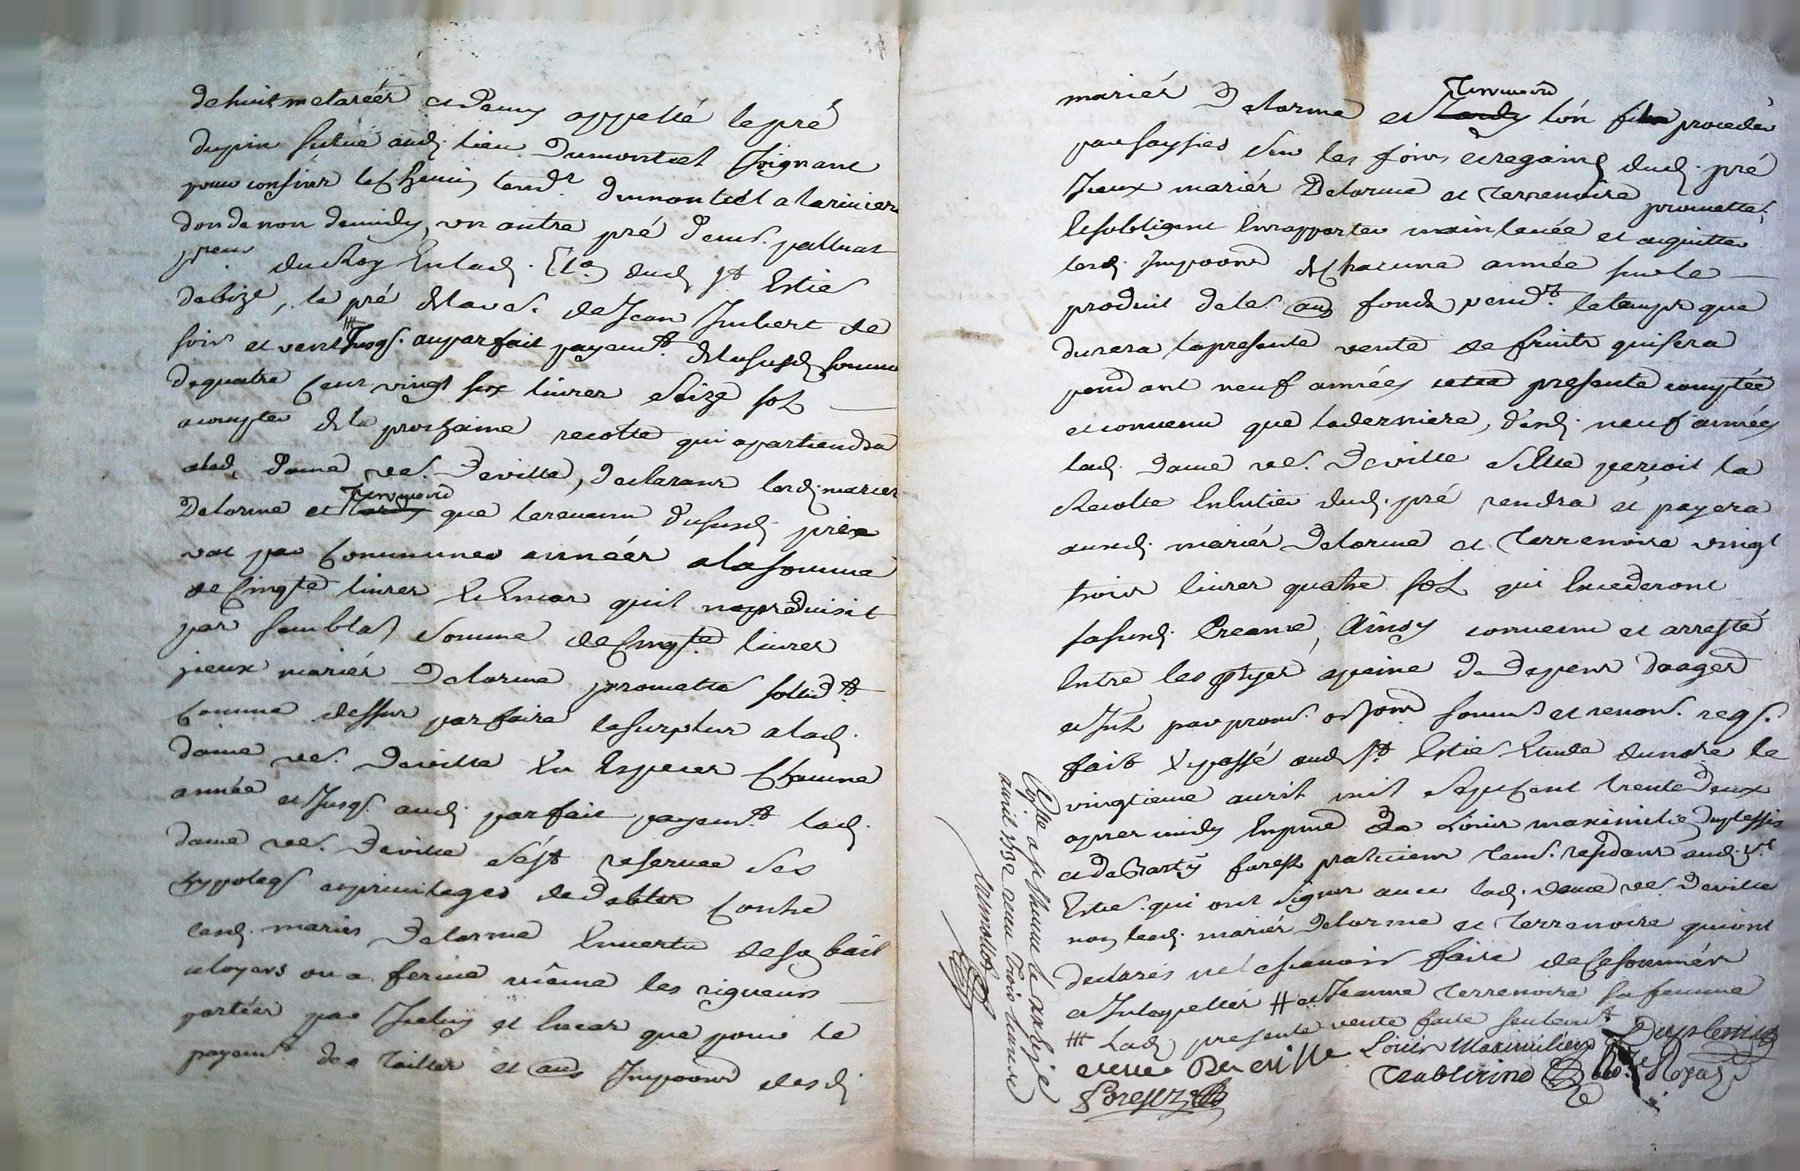 de huit metarées et demy appellé le pré
du pin situé aud. lieu Dumontcel Joignant
pour confins le chemin tend.t du montcel a la riviere
don de non de midy, un autre pré d'eus. palluat
du Roy En lad. El.on dud. S.t Estie
de bize, le pré de la ve. de Jean Imbert de
soir et vent ⧻ Jusq. au parfait payem.t de la susd. somme
de quatre Cent vingt six livres seize sol
a compter de la prochaine recolte qui apartiendra
a lad. dame ve. Deville, declarant lesd. mariés
Delorme et Terrenoire que le revenu du susd. pré
vat par Communes années a la somme
de Cinq.te livres & En cas quil ne produisit
par semblab somme de Cinq.te livres
yceux mariés Delorme promettes solid.t
Comme dessus parfaire le surplus a lad.
dame ve. Deville En Especes Chacune
année et Jusq. aud. parfait payem.t lad.
dame ve. Deville s'est reservée ses
hypoteqs. et privileges de debter Contre
lesd. mariés Delorme En vertu de son bail
a loyers ou a ferme même les rigueurs
portées par Iceluy et En cas que pour le
payem.t des Tailles et aus Impoons desd.
mariés Delorme et Terrenoire lon fit proceder
par saysies sur les foins et regains dud. pré
Iceux mariés Delorme et Terrenoire promettes.
& sobligent En rapporter main levée et acquitter
lesd. Impoons de Chacune année sur le
produit de les aus fonds pend.t le temps que
durera la presente vente de fruits qui sera
pendant neuf années cette presente comptée
et convenu que la derniere, d'esd. neuf années
lad. Dame ve. Deville si Elle perçoit la
Recolte En Entier dud. pré rendra et payera
auxd. mariés Delorme et Terrenoire vingt
trois livres quatre sol qui Excederont
sa susd. Creance, Ainsy convenu et arresté
Entre les ptyes a peine de depens domges
et Int. par prom. obon. soums. et renon. reqs.
fait & passé aud. S.t Estie Etude du nore le
vingtieme avril mil sept Cent trente deux
apres midy En pnce de Louis maximilie Duplessis
et de Barty forest praticiens tems. residant aud. S.t
Estie. qui ont signé avec lad. dame ve. Deville
non lesd. mariés Delorme et Terrenoire qui ont
declarés ne le scavoir faire de Ce sommés
et Interpellés ⧺ et Jeanne Terrenoire sa femme
⧻ Lad. presente vente faite seulem.t
veuve Deville Louis Maximilien Duplessis
Forest
Con.lé a S.t Estienne le
avril 1732 receu trois livres